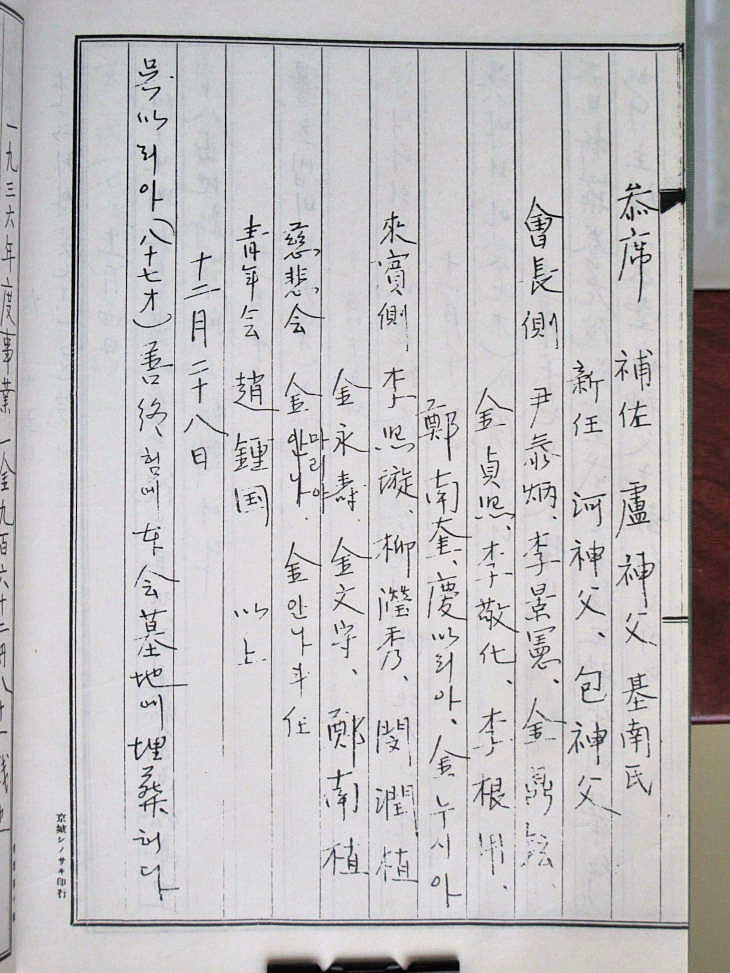 叅席 補佐 盧神父 基南氏
新任 河神父、包神父
會長側 尹泰炳、李景憲、金鼎
金貞熙、李敬化、李根
鄭南奎、慶마리아、金누시아
來賓側、李熙漩、柳瀅秀、閔潤植
金永壽、金文字、鄭南植
慈悲会 金마리아 안나、金안나
青年会 趙鍾国 以上
十二月二十八日
吳마리아(八十七才)善終、험매 本会墓地에 埋葬허다
京城シノサキ印行
一九三六年度事業一金九百六十二円八十一錢也